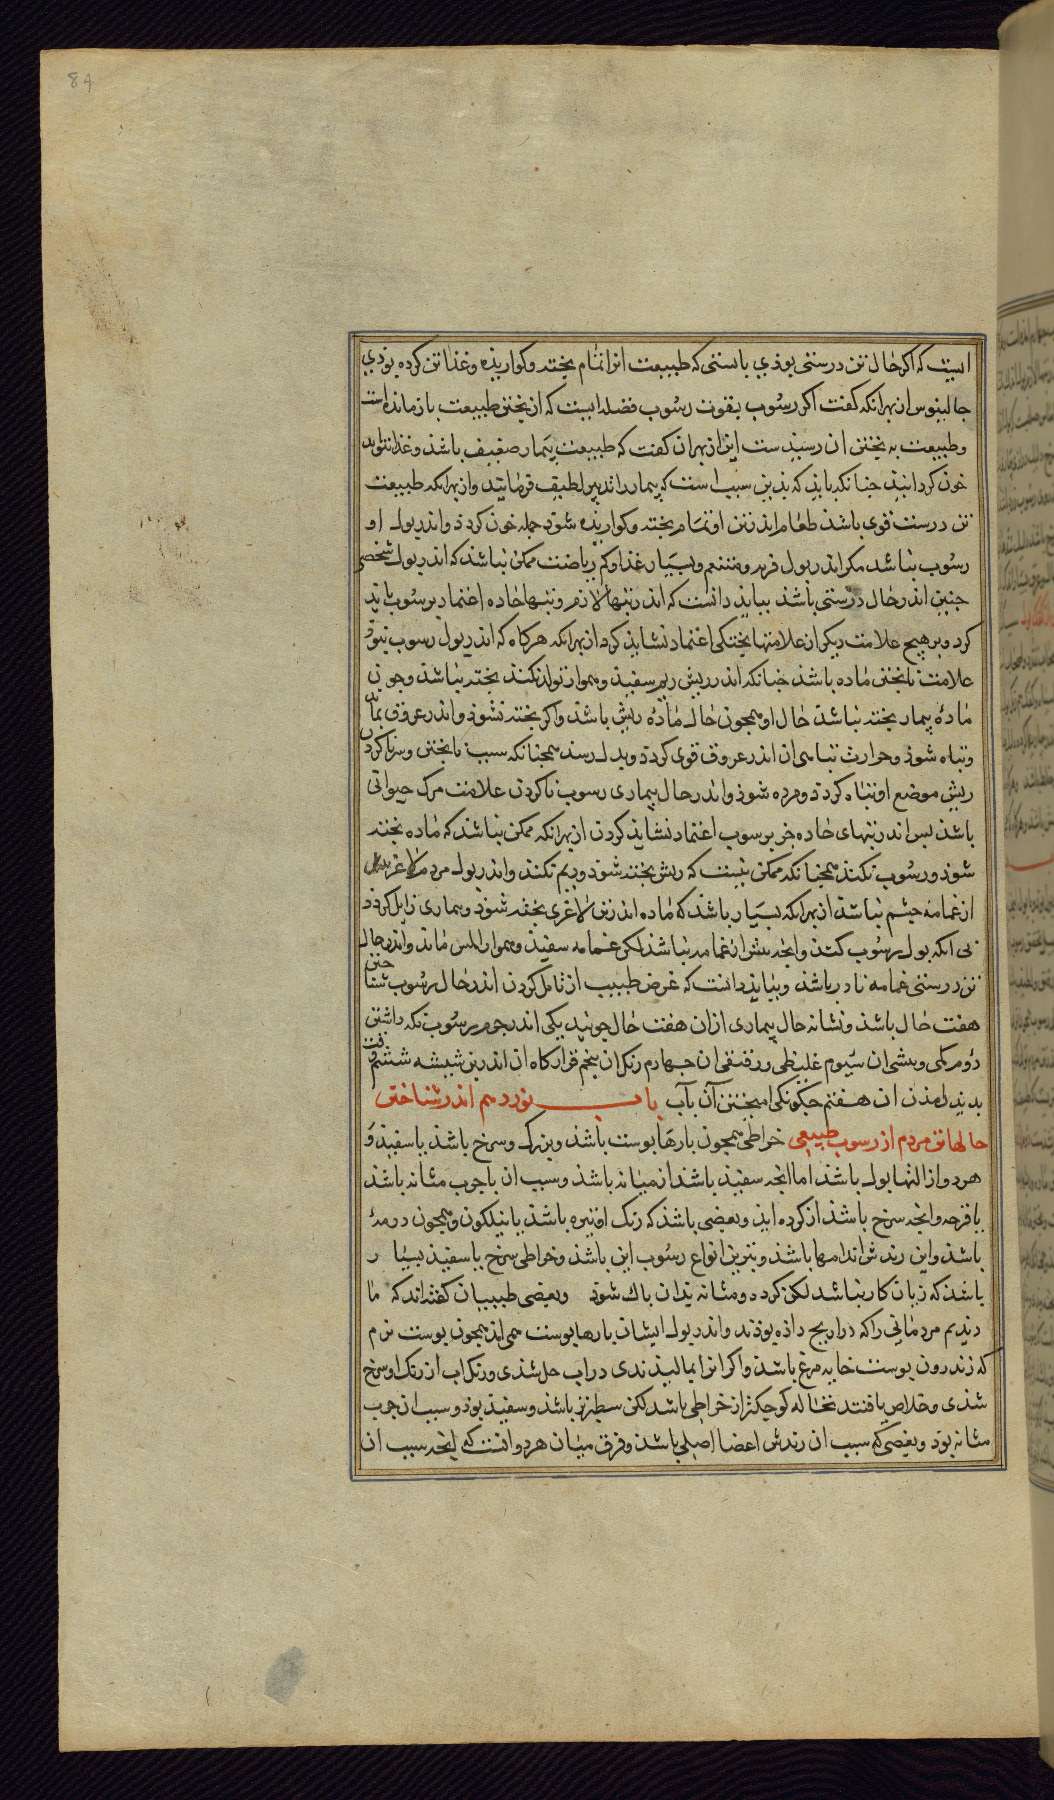 84
است که اکر حال تن درستی بوذی بایستی که طبیعت انرا تمام بخته و کواریذه و غذا تن کرده بوذی
جالینوس از بهر انکه کفت اکر رسوب بقوت رسوب فضله ایست که از بختن طبیعت باز مانده است
و طبیعت به بختن ان رسیذست این از بهر ان کفت که طبیعت بیمار ضعیف باشذ و غذا نتواند
خون کردانیذ جنانکه بایذ که بذین سبب است که بیمار را تدبیر لطیف فرمایند و از بهر انکه طبیعت
تن درست قوی باشذ طعام اندر تن او تمام بخته و کواریذه شوذ جمله خون کردذ و اندر بول او
رسوب نباشد مکر اندر بول فربه و متنعم و بسیار غذا و کم ریاضت ممکن نباشذ که اندر بول شخصی
جنین اندر حال درستی باشذ ببایذ دانست که اندر تبهاء لازم و تبها حاده اعتماد بر رسوب باید
کرد و بر هیچ علامت دیکر از علامتها بختکی اعتماد نشایذ کرد از بهر انکه هرکاه که اندر بول رسوب نبوذ
علامت نابختن ماده باشذ جنانکه اندر ریش ریم سفید و هموار تولد نکند بخته نباشذ و جون
مادۀ بیمار بخته نباشذ حال او همجون حال مادۀ ریش باشذ و اکر بخته نشوذ و اندر عروق بماند
و تباه شوذ و حرارت تباهی ان اندر عروق قوی کردذ و بدل رسد همجنانکه سبب نابختن و سر ناکردن
ریش موضع او تباه کردذ و مرده شوذ و اندر حال بیماری رسوب ناکردن علامت مرک حیوانی
باشذ بس اندر تبهای حاده جز بر رسوب اعتماد نشایذ کردن از بهر انکه ممکن نباشذ که ماده بخته
شوذ و رسوب نکند همجنانکه ممکن نیست که ریش بخته شوذ و ریم نکند و اندر بول مردم لاغر بیش
از غمامه جشم نباشذ از بهر انکه بسیار باشذ که ماده اندر تن لاغری بخته شوذ و بیماری زایل کردد
بی انکه بول رسوب کند و انجه بیش از غمامه نباشذ لکن غمامه سفید و هموار املس ماند و اندر حال
تن درستی غمامه نادر باشذ و ببایذ دانست که غرض طبیب از تامل کردن اندر حال رسوب شناختن
هفت حال باشذ و نشانه حال بیماری از ان هفت حال جویند یکی اندر جوهر رسوب نکه داشتن
دوم کمی و بیشی ان سیوم غلیظی و رقیقی ان جهارم رنک ان بنجم قرارکاه ان اندر بن شیشه ششم وقت
بدید امذن ان هفتم جکونکی امیختن آن بآب باب نوزدهم اندر شناختن
حالهاء تن مردم از رسوب طبیعی خراطی همجون بارها بوست باشذ و بزرک و سرخ باشذ یا سفید و
هردو از التها بول باشذ اما انجه سفید باشذ از مثانه باشذ و سبب ان یا جرب مثانه باشذ
یا قرحه و انجه سرخ باشذ از کرده ایذ و بعضی باشذ که رنک او تیره باشذ یا نیلکون و همجون درمۀ
باشذ و این رندش اندامها باشذ و بترین انواع رسوب این باشذ و خراطی سرخ یا سفید بسیار
باشذ که زیان کار نباشد لکن کرده و مثانه بدان باک شوذ و بعضی طبیبان کفته اند که ما
دیدیم مردمانی را که دراریح داذه بوذند و اندر بول ایشان بارها بوست همی امذ همجون بوست نرم
که زندرون بوست خایه مرغ باشذ و اکر انرا بمالیذندی در اب حل شذی و رنک اب از رنک او سرخ
شذی و خلاص یافتند نخاله کوجکتر از خراطی باشد لکن سطبرتر باشذ و سفید بوذ و سبب ان جرب
مثانه بوذ و بعضی که سبب ان رندش اعضا اصلی باشذ و فرق میان هردو انست که انجه سبب ان